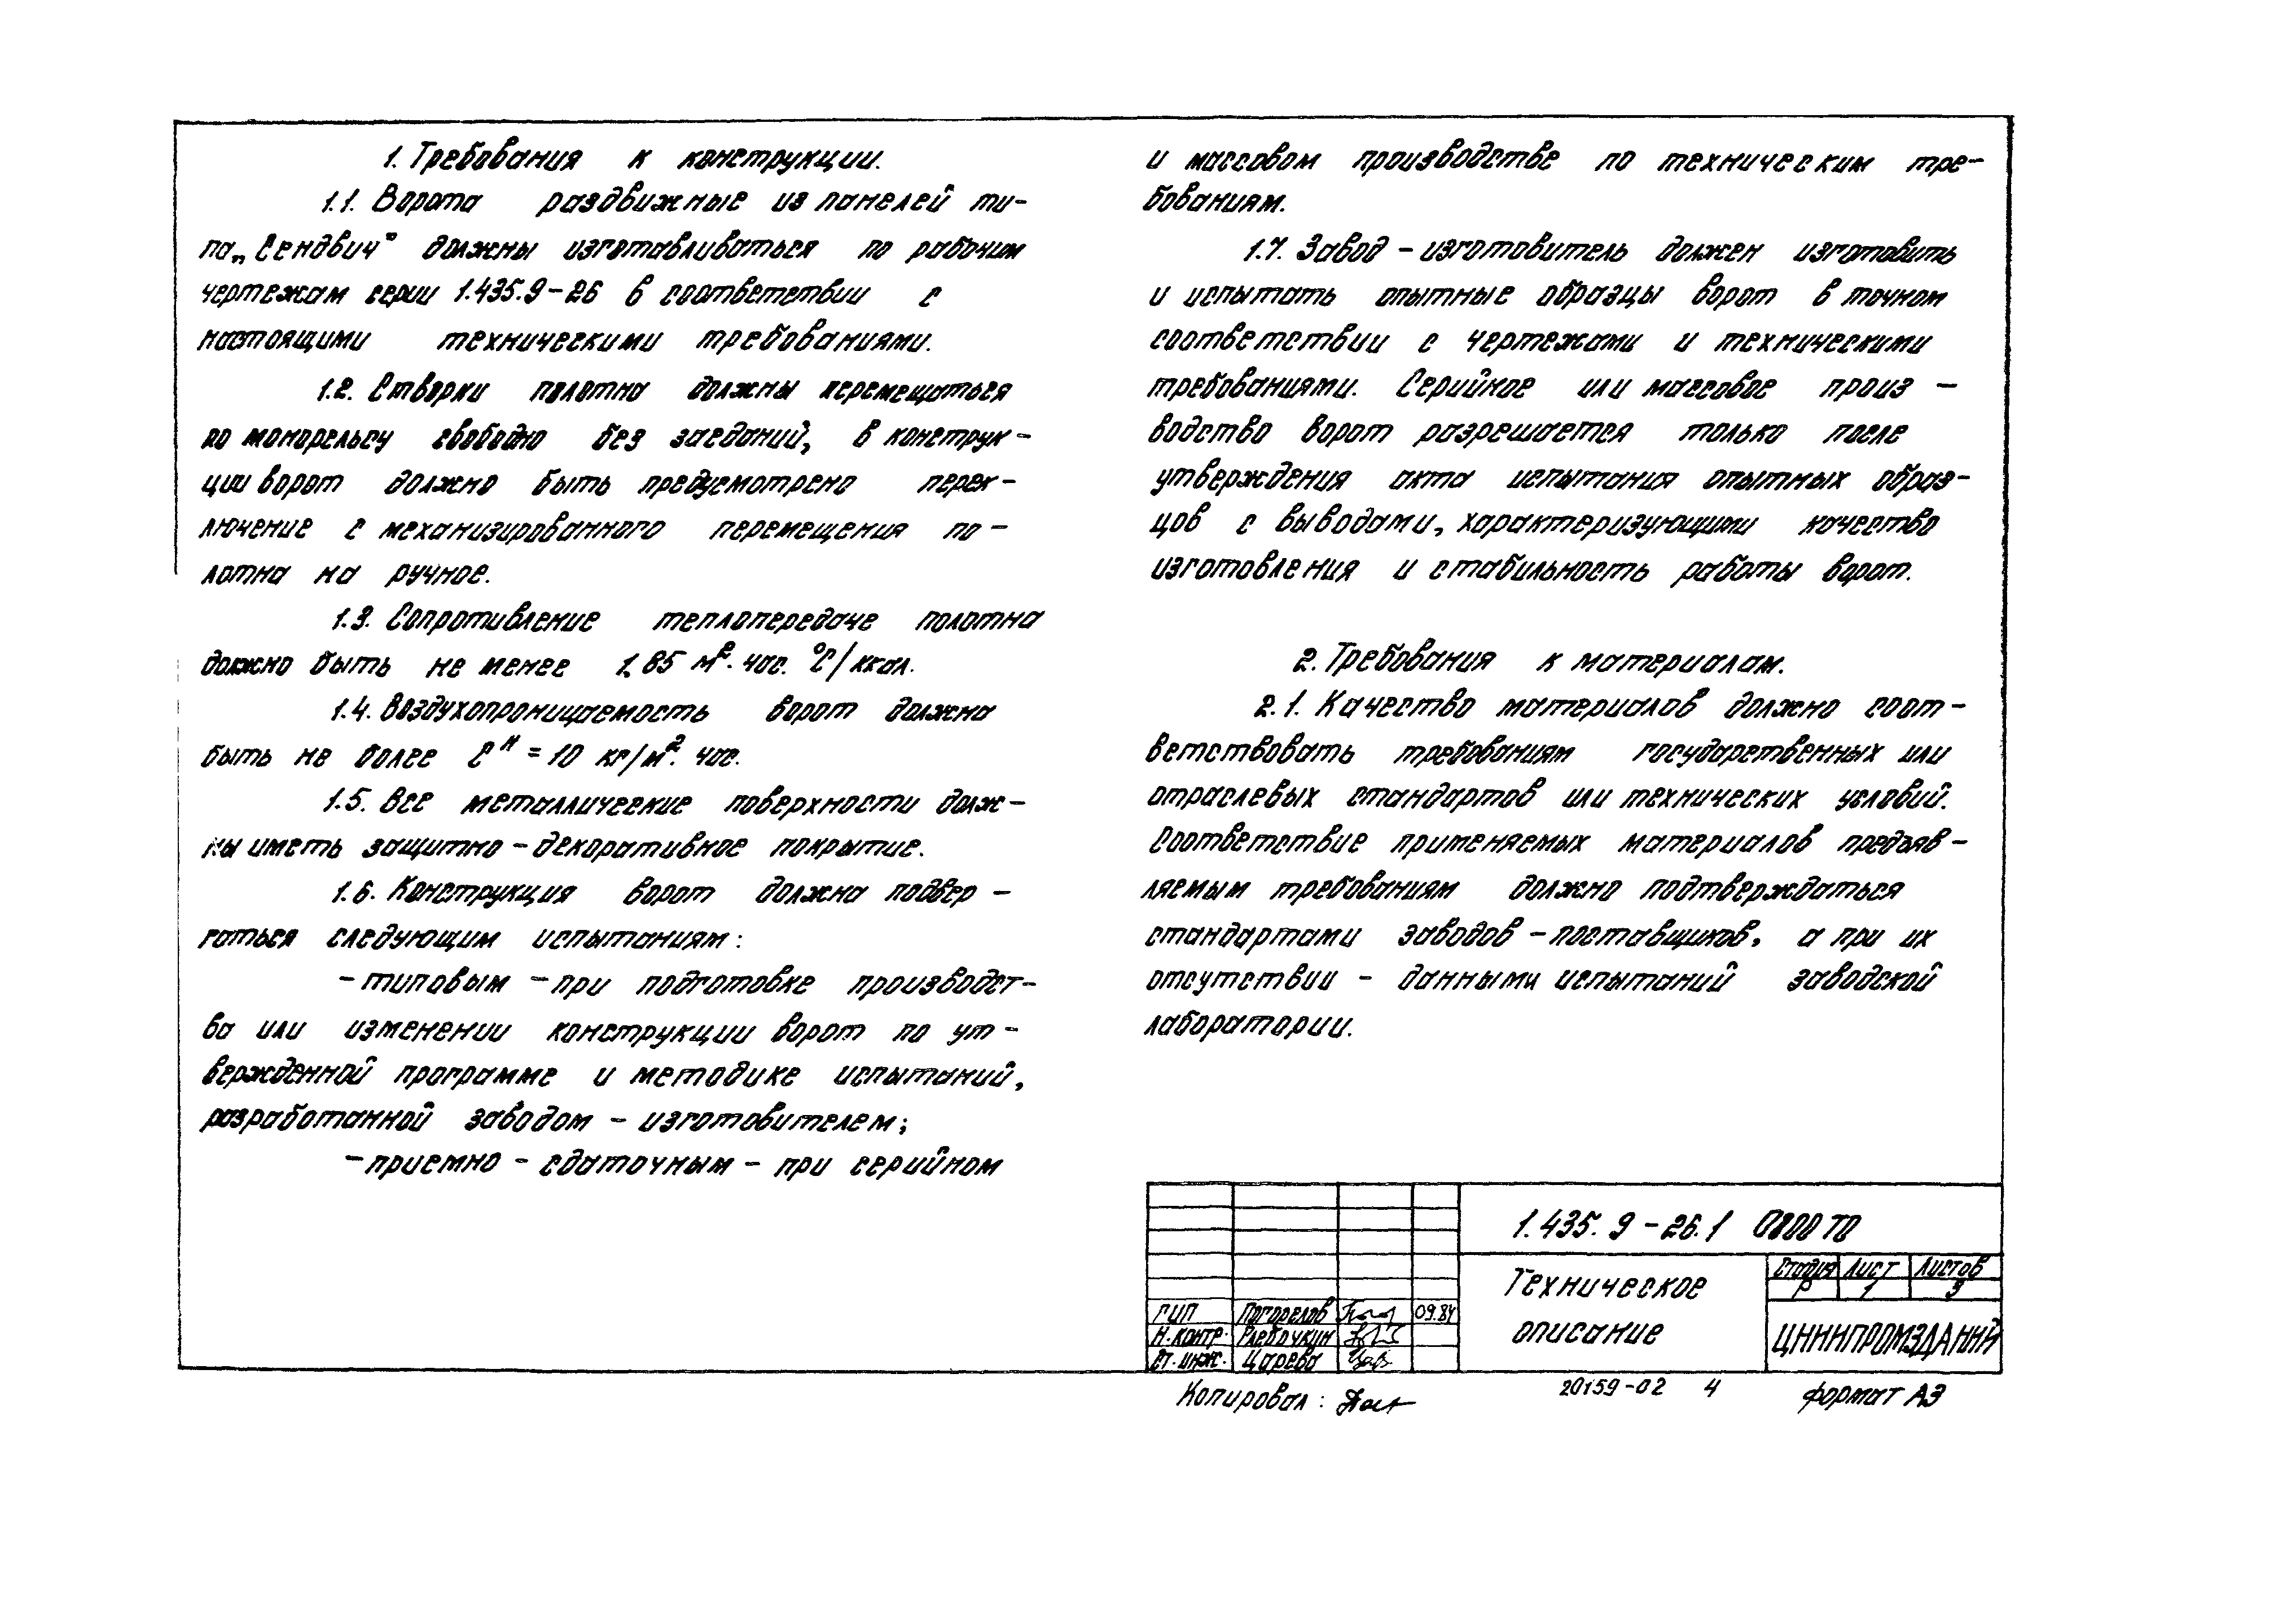 1. Требования к конструкции.
1.1. Ворота раздвижные из панелей ти-
па „Сендвич" должны изготавливаться по рабочим
чертежам серии 1.435.9-26 в соответствии с
настоящими техническими требованиями.
1.2. Створки полотна должны перемещаться
по монорельсу свободно без заеданий, в конструк-
ции ворот должно быть предусмотрено перек-
лючение с механизированного перемещения по-
лотна на ручное.
1.3. Сопротивление теплопередаче полотна
должно быть не менее 1,85 м². час. °С/ккал.
1.4. Воздухопроницаемость ворот должна
быть не более С ᴴ = 10 кг/м². час.
1.5. Все металлические поверхности долж-
ны иметь защитно-декоративное покрытие.
1.6. Конструкция ворот должна подвер-
гаться следующим испытаниям:
- типовым - при подготовке производст-
ва или изменении конструкции ворот по ут-
вержденной программе и методике испытаний,
разработанной заводом - изготовителем;
- приемно - сдаточным - при серийном
и массовом производстве по техническим тре-
бованиям.
1.7. Завод - изготовитель должен изготовить
и испытать опытные образцы ворот в точном
соответствии с чертежами и техническими
требованиями. Серийное или массовое произ-
водство ворот разрешается только после
утверждения акта испытания опытных образ-
цов с выводами, характеризующими качество
изготовления и стабильность работы ворот.
2. Требования к материалам.
2.1. Качество материалов должно соот-
ветствовать требованиям государственных или
отраслевых стандартов или технических условий.
Соответствие применяемых материалов предъяв-
ляемым требованиям должно подтверждаться
стандартами заводов - поставщиков, а при их
отсутствии - данными испытаний заводской
лаборатории.
1.435.9-26.1 0800 ТО
Техническое
описание
Стадия Лист Листов
Р 1 3
ЦНИИПРОМЗДАНИЙ
ГИП Погорелов 09.84
Н.контр. 
Ст. инж. Царева
Копировал:
20159-02 4
формат А3